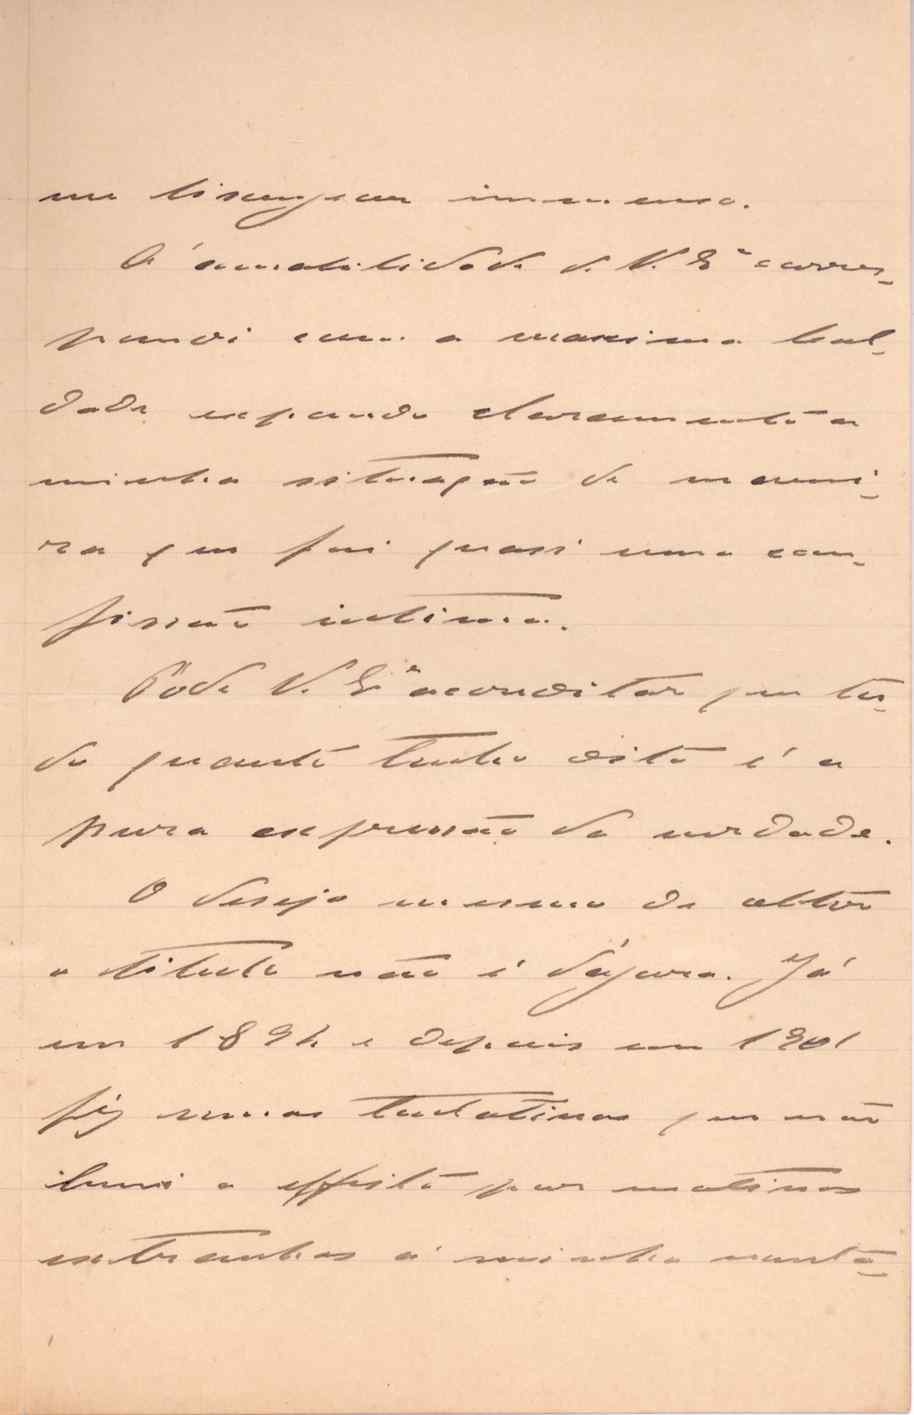 me lisongeou immenso.
A' amabilidade de V. Exª corres-
pondi com a maxima leal-
dade expondo claramente a
minha situação de manei-
ra que foi quasi uma con-
fissão intima.
Póde V. Exª acreditar que tu-
do quanto tenho dito é a
pura expressão da verdade.
O desejo mesmo de obter
o titulo não é d'agora. Já
em e depois em 1901
fiz umas tentativas que não
levei a effeito por motivos
extranhos á minha vonta-